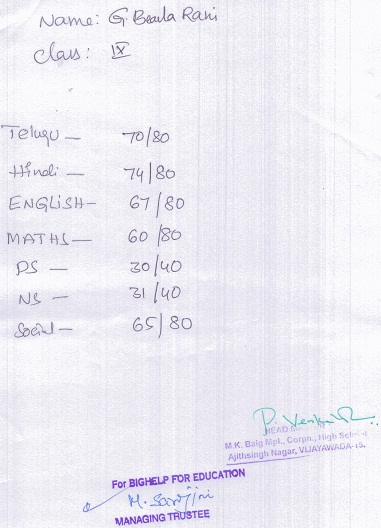 Name: G. Beaula Rani
Class: IX
Telugu — 70/80
Hindi — 74/80
ENGLISH — 67/80
MATHS — 60/80
PS — 30/40
NS — 31/40
Social — 65/80
P. Venkat
HEAD
M.K. Baig Mpl., Corpn., High School
Ajithsingh Nagar, VIJAYAWADA-15.
For BIGHELP FOR EDUCATION
M. Sarojini
MANAGING TRUSTEE